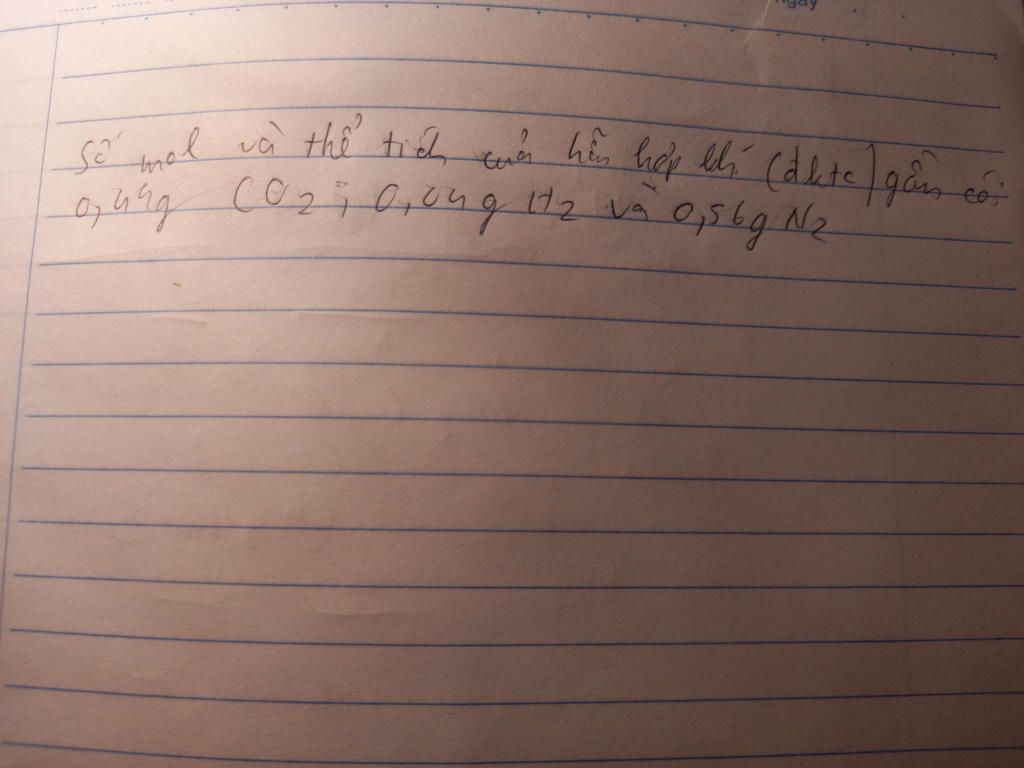 ngày
Số mol và thể tích của hỗn hợp khí (đktc) gồm có:
0,44g CO2; 0,04g H2 và 0,56g N2